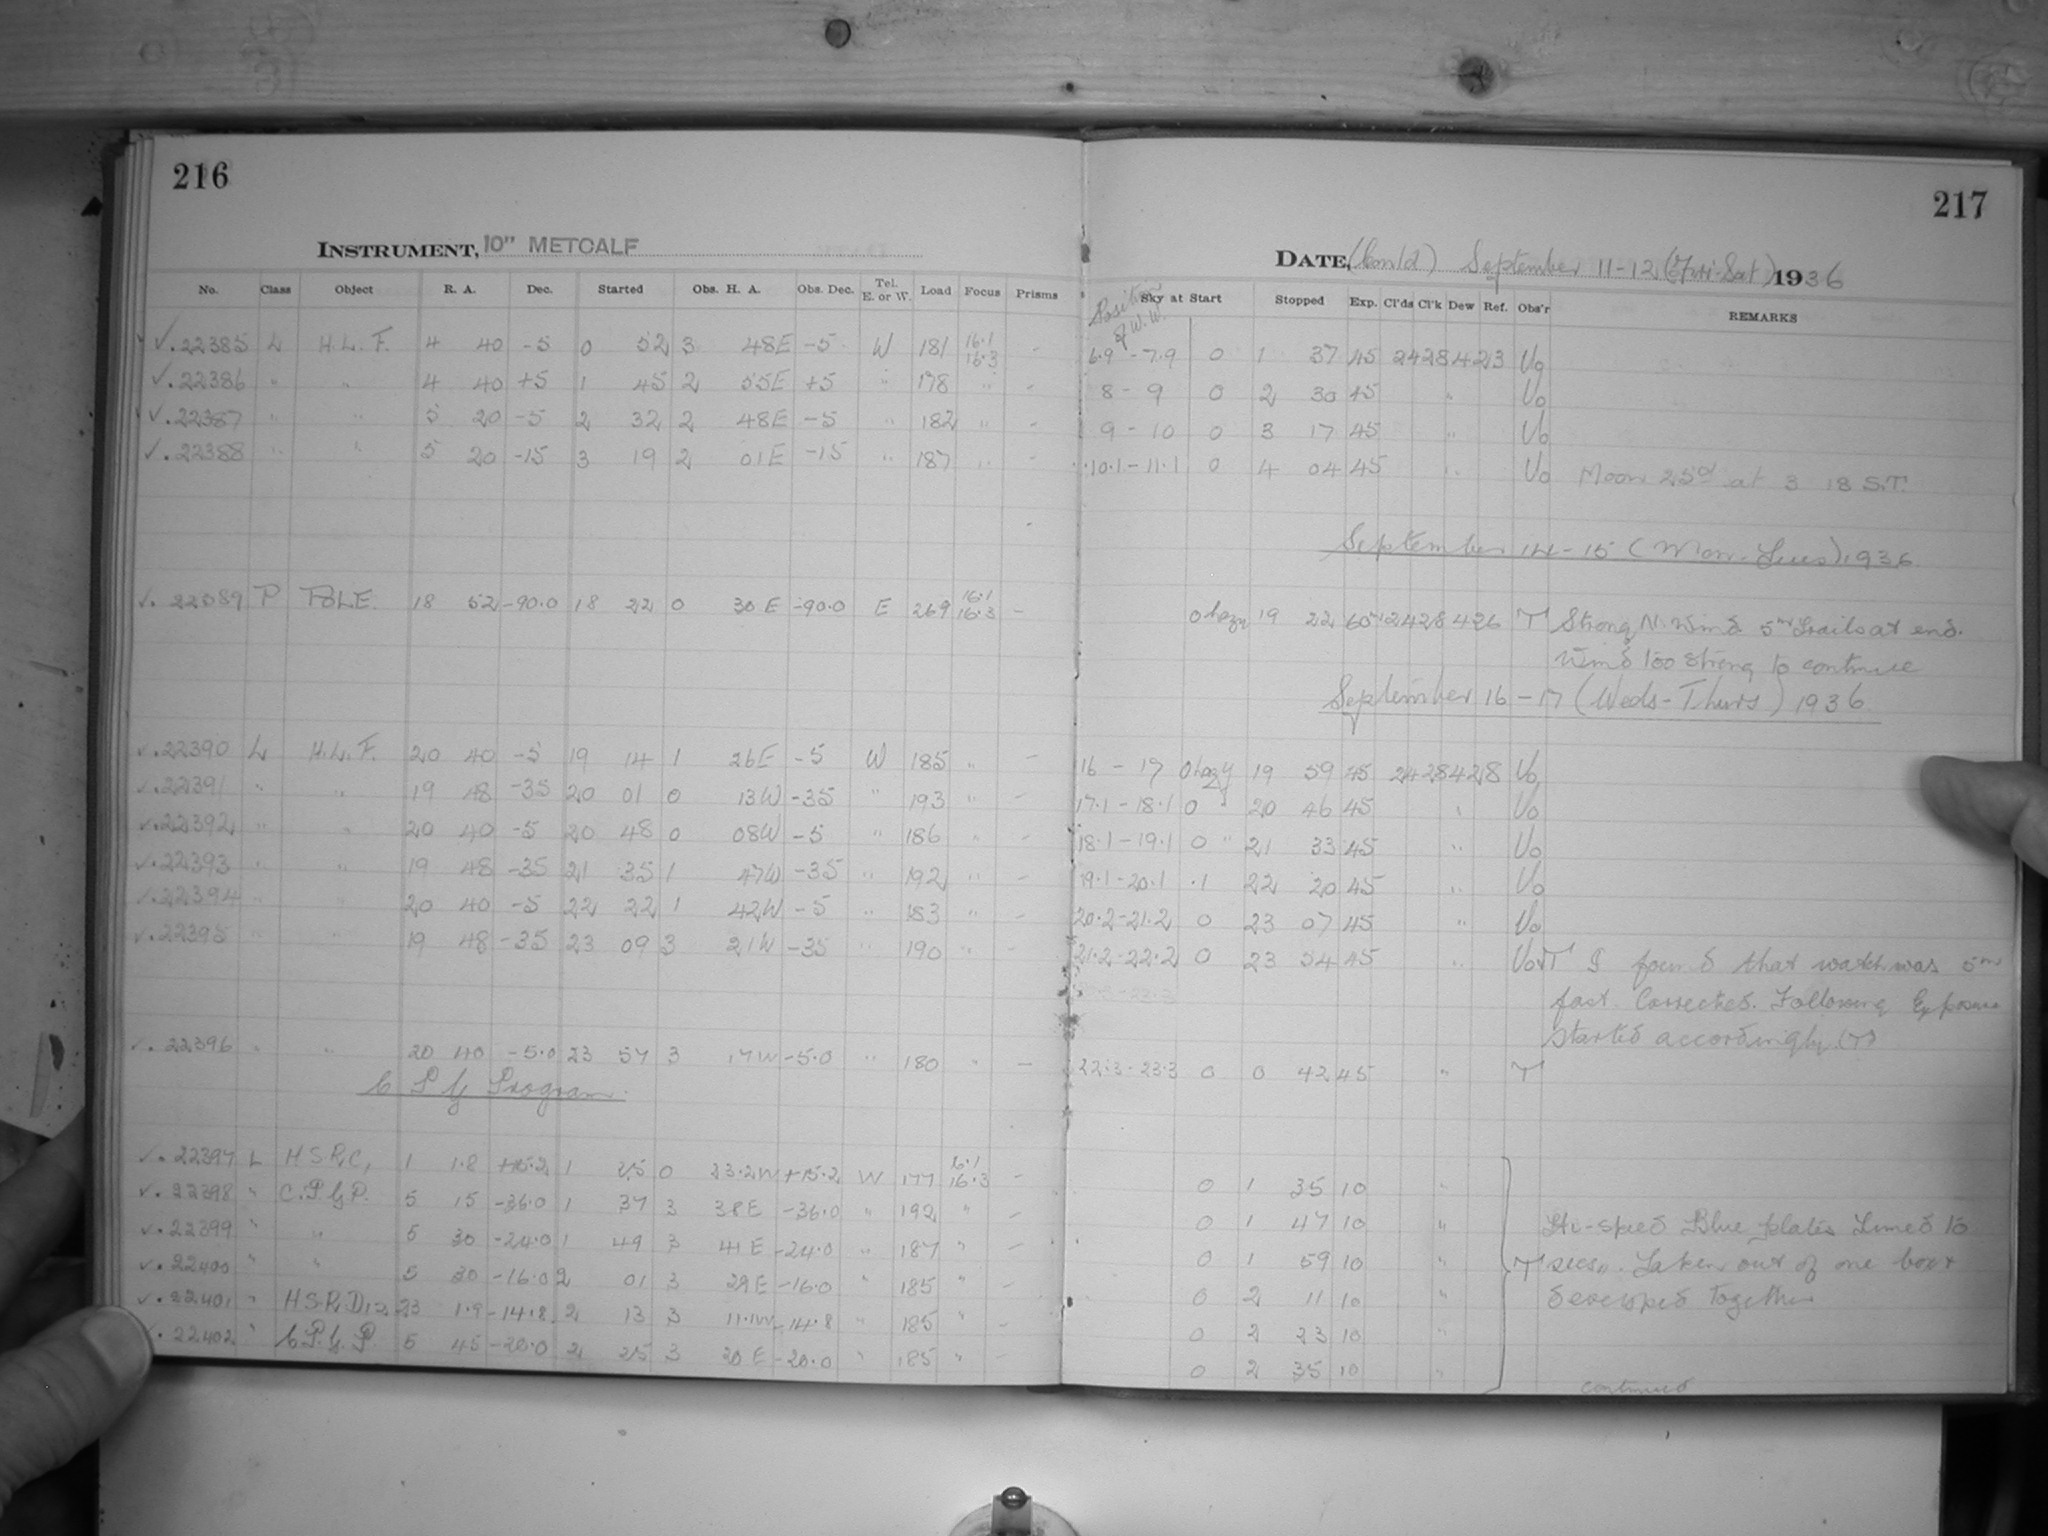 216
INSTRUMENT, 10" METCALF
No. Class Object R. A. Dec. Started Obs. H. A. Obs. Dec. Tel. E. or W. Load Focus Prisms
✓.22385 L H.L.F. 4 40 -5 0 52 3 48E -5 W 181 16.1 16.3 -
✓.22386 " " 4 40 +5 1 45 2 55E +5 " 178 " -
✓.22387 " " 5 20 -5 2 32 2 48E -5 " 182 " -
✓.22388 " " 5 20 -15 3 19 2 01E -15 " 187 " -
✓.22389 P POLE. 18 52 -90.0 18 22 0 30E -90.0 E 269 16.1 16.3 -
✓.22390 L H.L.F. 20 40 -5 19 14 1 26E -5 W 185 " -
✓.22391 " " 19 48 -35 20 01 0 13W -35 " 193 " -
✓.22392 " " 20 40 -5 20 48 0 08W -5 " 186 " -
✓.22393 " " 19 48 -35 21 35 1 47W -35 " 192 " -
✓.22394 " " 20 40 -5 22 22 1 42W -5 " 183 " -
✓.22395 " " 19 48 -35 23 09 3 21W -35 " 190 " -
✓.22396 " " 20 40 -5.0 23 57 3 17W -5.0 " 180 " -
C P G Program.
✓.22397 L 1 1.8 +15.2 1 25 0 23.2W +15.2 W 177 16.1 16.3 -
✓.22398 " C.P.G.P. 5 15 -36.0 1 37 3 38E -36.0 " 192 " -
✓.22399 " " 5 30 -24.0 1 49 3 41E -24.0 " 187 " -
✓.22400 " " 5 30 -16.0 2 01 3 29E -16.0 " 185 " -
✓.22401 " 23 1.9 -14.8 2 13 3 11.1W -14.8 " 185 " -
✓.22402 " C.P.G.P. 5 45 -20.0 2 25 3 20E -20.0 " 185 " -
217
DATE, (Cont'd) September 11-12 (Fri-Sat) 1936
Position of W.W. Sky at Start Stopped Exp. Cl'ds Cl'k Dew Ref. Obs'r REMARKS
6.9 - 7.9 0 1 37 45 24 28 42 3 Uo
8 - 9 0 2 30 45 " Uo
9 - 10 0 3 17 45 " Uo
10.1 - 11.1 0 4 04 45 " Uo Moon 25d at 3 18 S.T.
September 14-15 (Mon-Tues) 1936
0 hazy 19 22 60 24 28 42 6 T Strong N. Wind 5m trails at end.
Wind too strong to continue
September 16-17 (Weds-Thurs) 1936
16 - 17 0 hazy 19 59 45 24 28 42 8 Uo
17.1 - 18.1 0 20 46 45 " Uo
18.1 - 19.1 0 " 21 33 45 " Uo
19.1 - 20.1 .1 22 20 45 " Uo
20.2 - 21.2 0 23 07 45 " Uo
21.2 - 22.2 0 23 54 45 " Uo+T I found that watch was 5m
fast. Corrected. Following Exposure
started accordingly. (T)
22.3 - 23.3 0 0 42 45 " T
0 1 35 10 "
0 1 47 10 " Hi-speed Blue plates timed 10
0 1 59 10 " T secs. Taken out of one box +
0 2 11 10 " developed together
0 2 23 10 "
0 2 35 10 "
continued